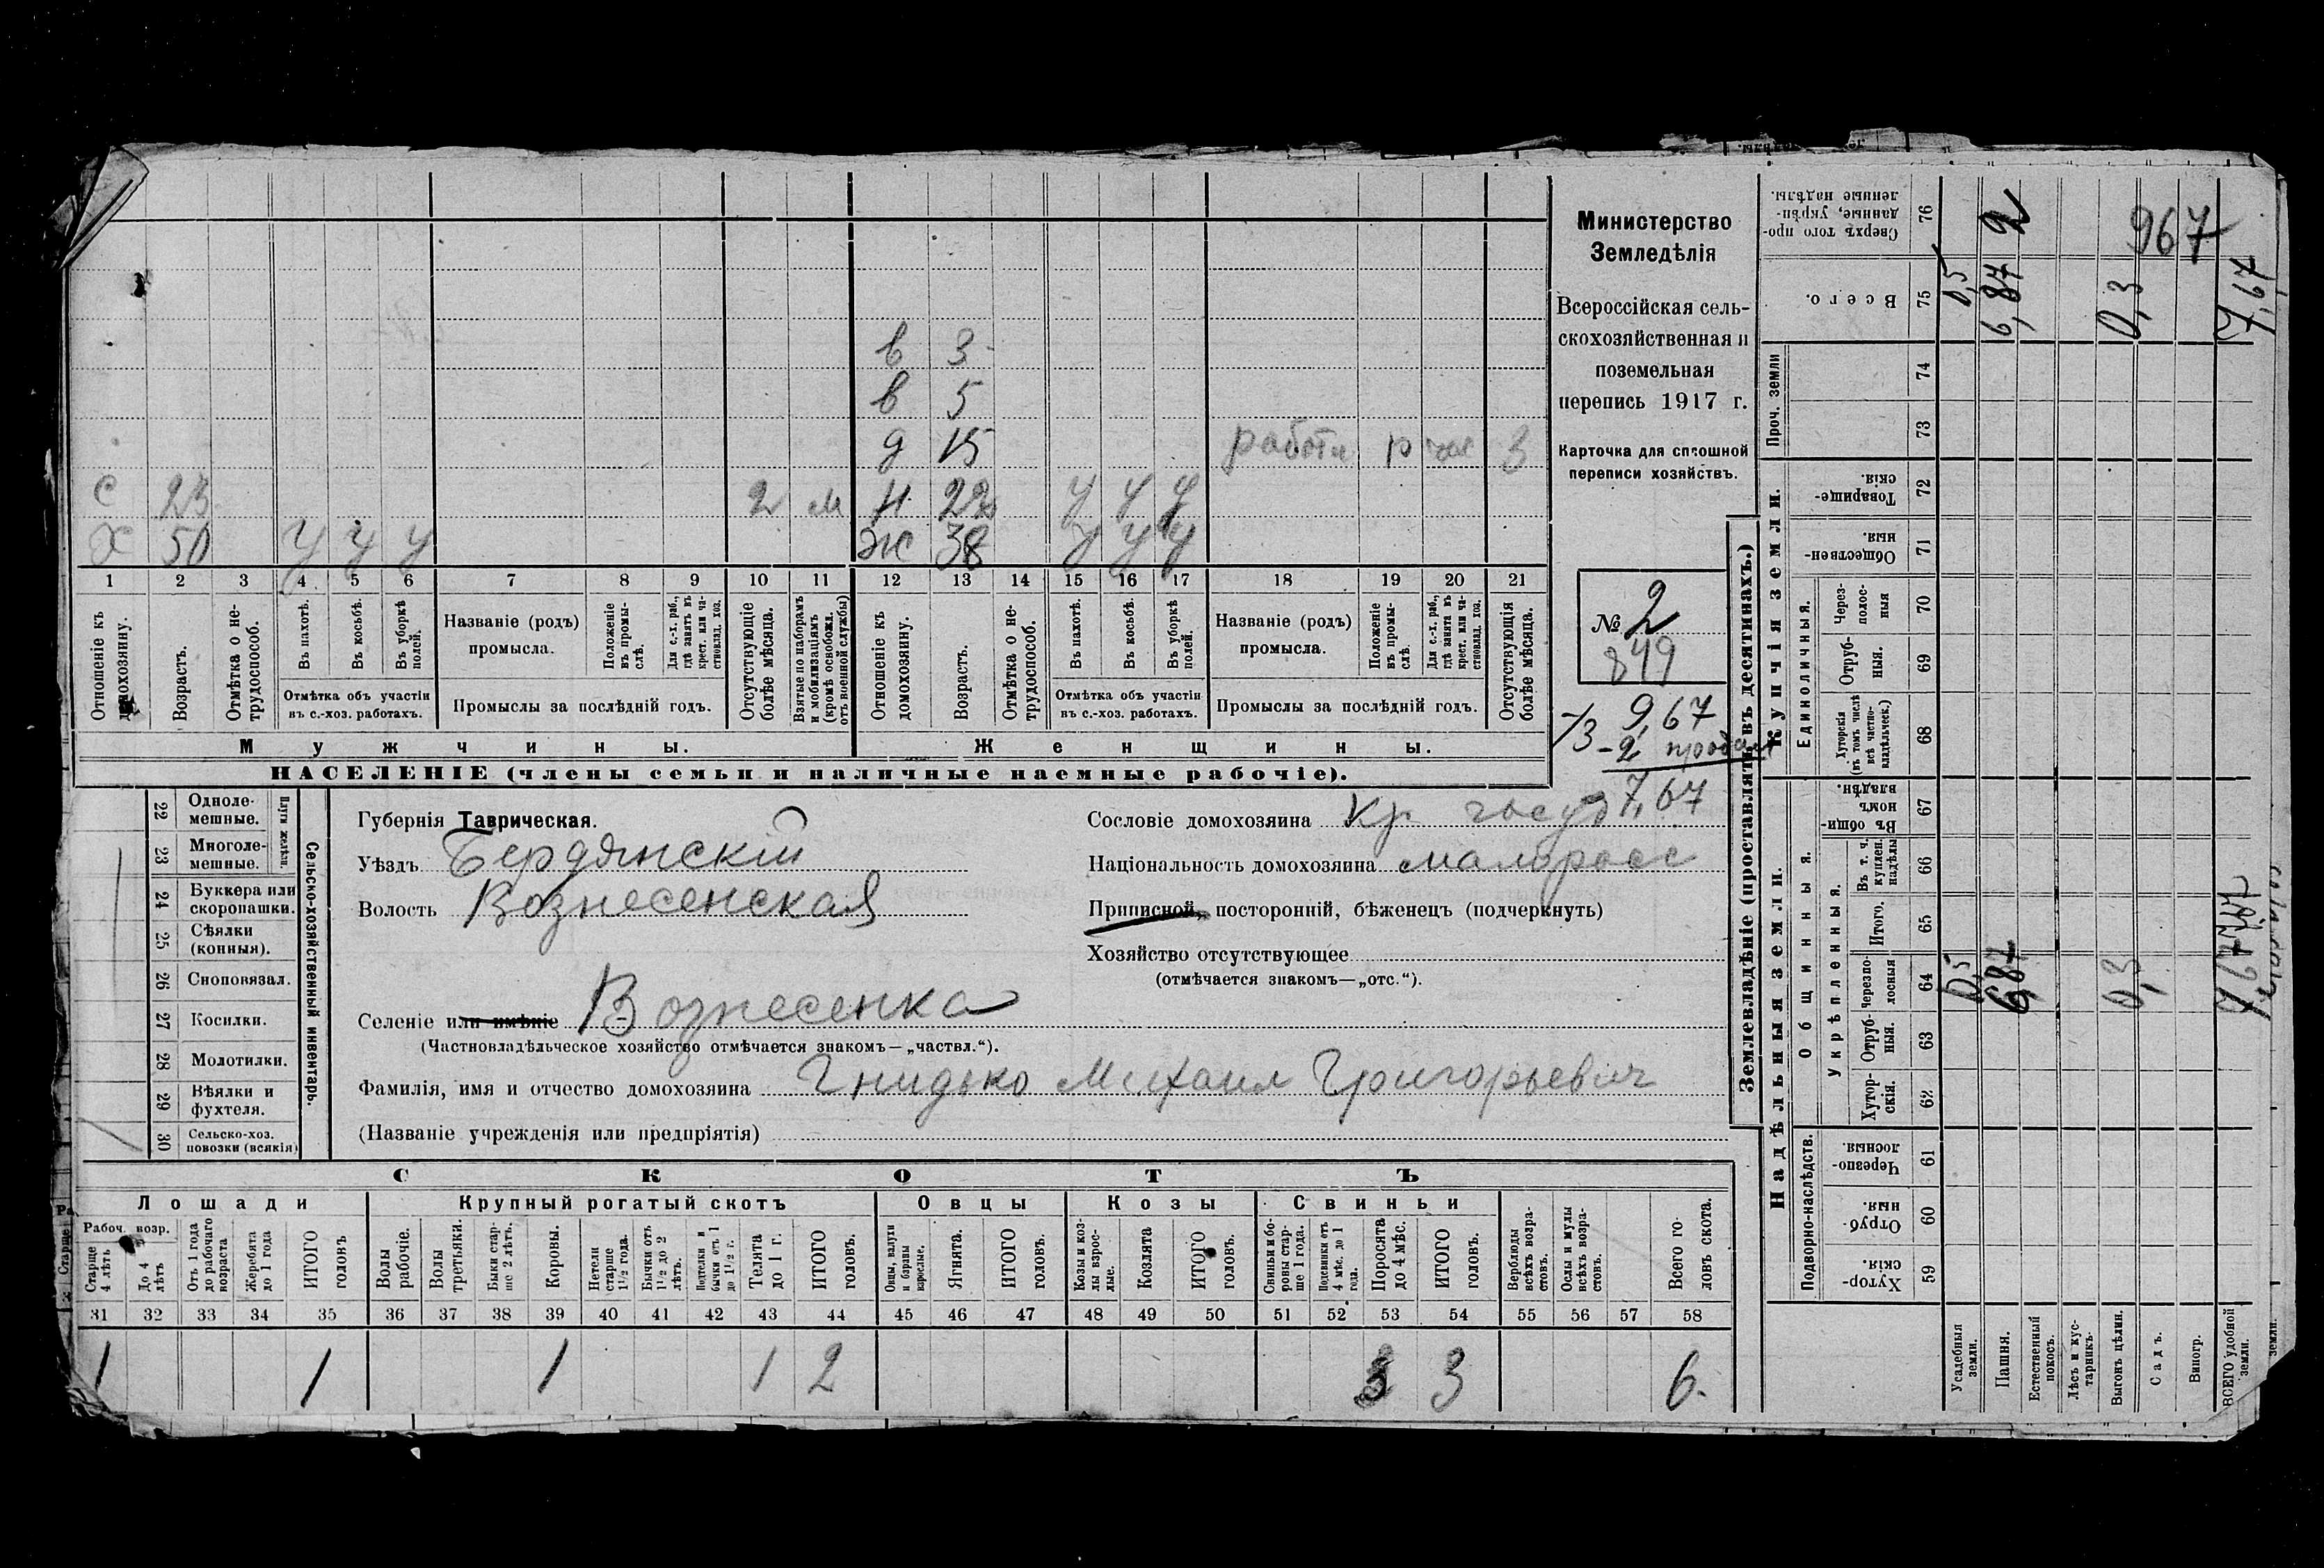 в 3
в 5
д 15 работн р час 3
С 23 2 м н 22 у у у
Х 50 у у у ж 38 у у у
1 2 3 4 5 6 7 8 9 10 11 12 13 14 15 16 17 18 19 20 21
Отношеніе къ домохозяину.
Возрастъ.
Отмѣтка о нетрудоспособ.
Въ пахотѣ.
Въ косьбѣ.
Въ уборкѣ полей.
Отмѣтка объ участіи въ с.-хоз. работахъ.
Названіе (родъ) промысла.
Положеніе въ промыслѣ.
Для с.-х. раб., гдѣ занятъ въ крест. или частновлад. хоз.
Промыслы за послѣдній годъ.
Отсутствующіе болѣе мѣсяца.
Взятые по наборамъ и мобилизаціямъ (кромѣ освобожд. отъ военной службы)
Отношеніе къ домохозяину.
Возрастъ.
Отмѣтка о нетрудоспособ.
Въ пахотѣ.
Въ косьбѣ.
Въ уборкѣ полей.
Отмѣтка объ участіи въ с.-хоз. работахъ.
Названіе (родъ) промысла.
Положеніе въ промыслѣ.
Для с.-х. раб., гдѣ занята въ крест. или частновлад. хоз.
Промыслы за послѣдній годъ.
Отсутствующія болѣе мѣсяца.
Мужчины. Женщины.
НАСЕЛЕНІЕ (члены семьи и наличные наемные рабочіе).
Министерство
Земледѣлія
Всероссійская сель-
скохозяйственная и
поземельная
перепись 1917 г.
Карточка для сплошной
переписи хозяйствъ.
№ 2
849
9,67
-2 продал
7,67
Сельско-хозяйственный инвентарь.
22 Одноле-мешные.
23 Многоле-мешные.
24 Буккера или скоропашки.
25 Сѣялки (конныя).
26 Сноповязал.
27 Косилки.
28 Молотилки.
29 Вѣялки и фухтеля.
30 Сельско-хоз. повозки (всякія)
Губернія Таврическая.
Уѣздъ Бердянскій
Волость Вознесенская
Селеніе или имѣніе Вознесенка
(Частновладѣльческое хозяйство отмѣчается знакомъ—„частвл.“).
Фамилія, имя и отчество домохозяина Гнидько Михаил Григорьевич
(Названіе учрежденія или предпріятія)
Сословіе домохозяина Кр госуд
Національность домохозяина малоросс
Приписной, посторонній, бѣженецъ (подчеркнуть)
Хозяйство отсутствующее
(отмѣчается знакомъ—„отс.“).
СКОТЪ
Лошади Крупный рогатый скотъ Овцы Козы Свиньи
Рабоч. возр.
Старше 4 лѣтъ
До 4 лѣтъ
Отъ 1 года до рабочаго возраста
Жеребята до 1 года
ИТОГО головъ
Волы рабочіе.
Волы третьяки.
Быки старше 2 лѣтъ.
Коровы.
Нетели старше 1½ года.
Бычки отъ 1½ до 2 лѣтъ.
Подтелки и бычки отъ 1 до 1½ г.
Телята до 1 г.
ИТОГО головъ.
Овцы, валухи и бараны взрослые.
Ягнята.
ИТОГО головъ.
Козы и козлы взрослые.
Козлята
ИТОГО головъ.
Свиньи и боровы старше 1 года.
Подсвинки отъ 4 мѣс. до 1 года.
Поросята до 4 мѣс.
ИТОГО головъ.
Верблюды всѣхъ возрастовъ.
Ослы и мулы всѣхъ возрастовъ.
Всего головъ скота.
31 32 33 34 35 36 37 38 39 40 41 42 43 44 45 46 47 48 49 50 51 52 53 54 55 56 57 58
1 1 1 1 2 3 3 6.
Землевладѣніе (проставлять въ десятинахъ.)
Купчія земли.
Надѣльныя земли.
Сверхъ того проданные, укрѣпленные надѣлы. 76 2
Всего. 75 0,5 6,87 0,3 7,67
967
Проч. земли 74 73
Товарищескія. 72
Общественныя. 71
Единоличныя.
Черезполосныя 70
Отрубныя. 69
Хуторскія (въ томъ числѣ всѣ частновладѣльческ.) 68
Общинныя.
Въ общинномъ владѣн. 67
Укрѣпленныя.
Въ т. ч. куплен. надѣлы 66
Итого. 65
Черезполосныя 64 0,5 6,87 0,3
Отрубныя. 63
Хуторскія. 62
Подворно-наслѣдств.
Черезполосныя 61
Отрубныя. 60
Хуторскія. 59
Усадебныя земли.
Пашня.
Естественный покосъ.
Лѣсъ и кустарникъ.
Выгонъ цѣлин.
Садъ.
Виногр.
ВСЕГО удобной земли.